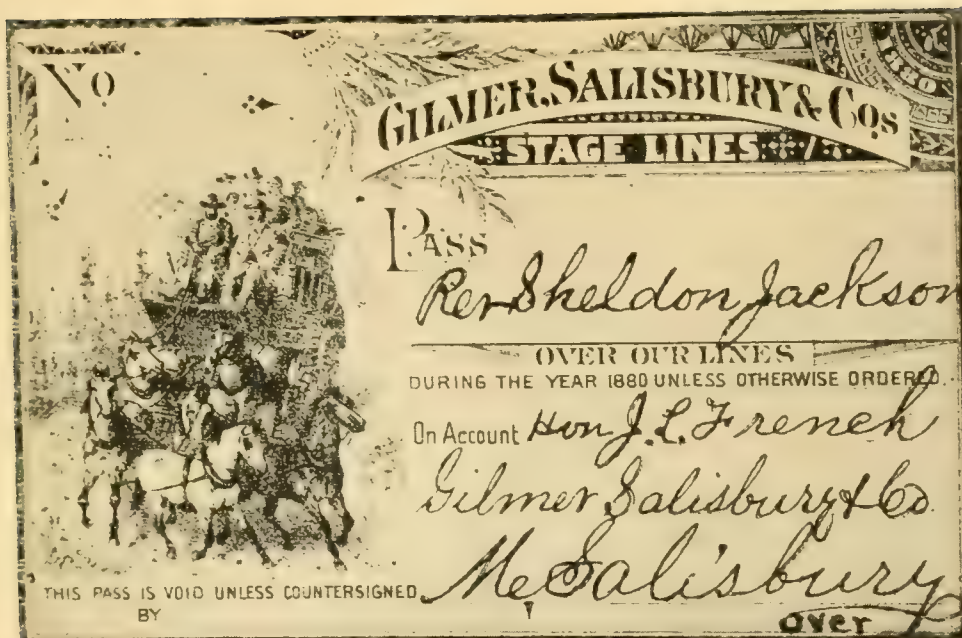 No
1880
GILMER, SALISBURY & COS
STAGE LINES
PASS
Rev Sheldon Jackson
OVER OUR LINES
DURING THE YEAR 1880 UNLESS OTHERWISE ORDERED.
On Account Hon J. L. French
Gilmer Salisbury & Co.
M Salisbury
THIS PASS IS VOID UNLESS COUNTERSIGNED
BY
over